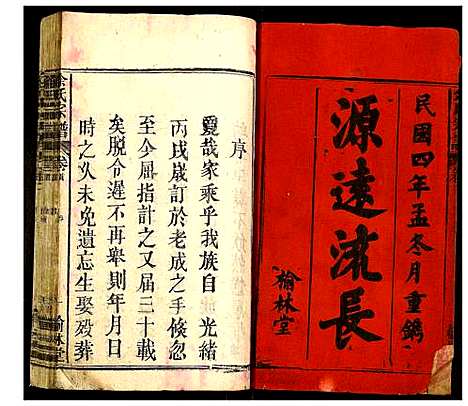 民國四年孟冬月重鐫
源遠流長
榆林堂
序
夐哉家乘乎我族自 光緒
丙戌歲訂於老成之手倏忽
至今屈指計之又届三十載
矣脱令遲不再舉則年月日
時之久未免遺忘生娶殁葬
余氏宗譜 卷首
榆林堂